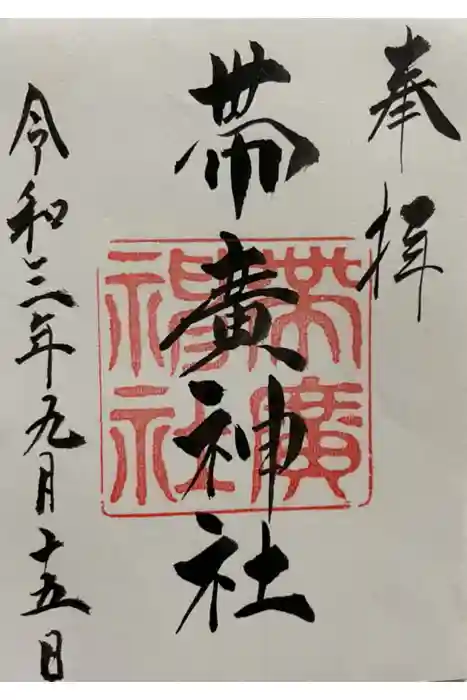 奉拝
帯廣神社
帯廣神社
令和三年九月十五日